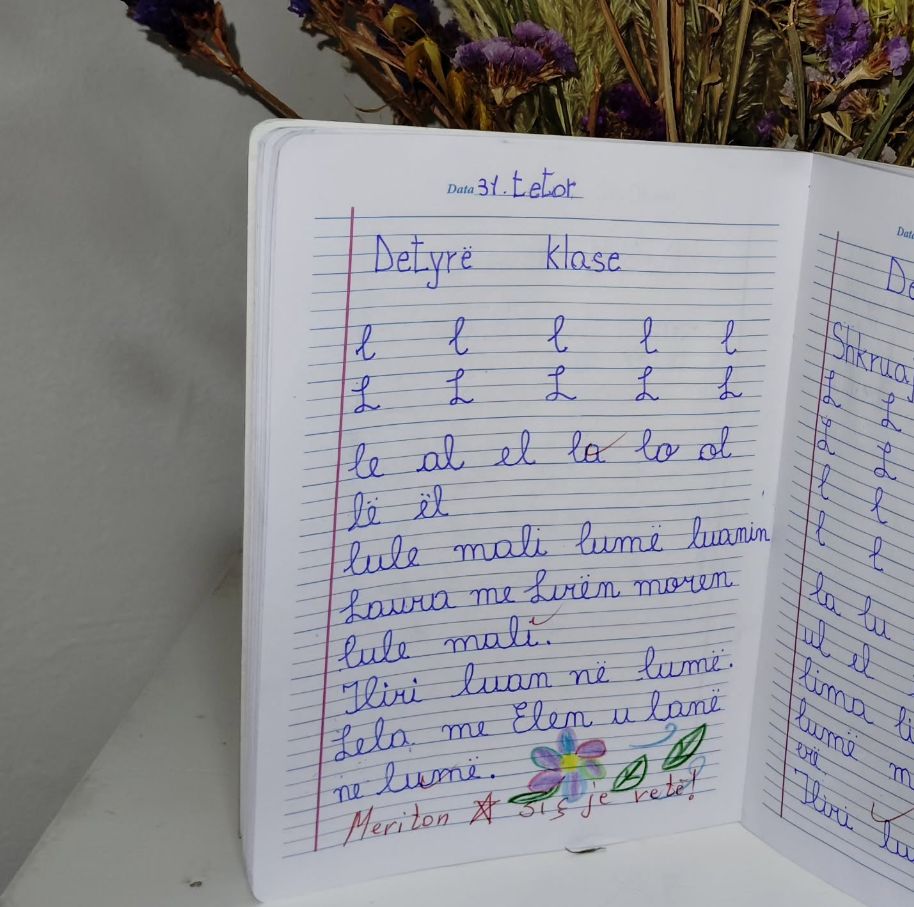 Data 31. tetor
Detyrë klase
l l l l l
L L L L L
le al el la lo ol
lë ël
lule mali lumë luanin
Laura me Lirën moren
lule mali.
Iliri luan në lumë.
Lela me Elem u lanë
ne lumë.
Meriton siç je vetë!
Shkruaj
L L
L L
l l
l l
la lu
ul el
lima
lumë
erë
Iliri